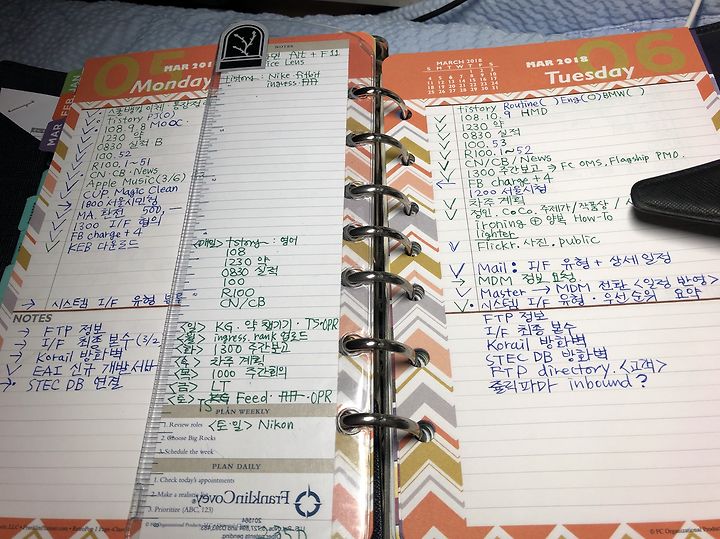 05
MAR 2018
Monday
JAN
FEB
MAR
tistory PJ(O)
108. 9. 8 MOOC
1230 약
0830 실적 B
100. 52
R100. 1~51
CN·CB·News
Apple Music(3/6)
CUP Magic Clean
1800 서울시민청
MA. 잔전 500,—
1300 I/F 협의
FB charge+4
KEB 다운로드
→ 시스템 I/F 유형 분류
NOTES
→ FTP 정보
→ I/F 최종 보수 (3/2
→ Korail 방화벽
EAI 신규 개발서버
→ STEC DB 연결
NOTES
Alt + F11
tistory : Nike fitbit
ingress
<매일> tistory : 영어
108
1230 약
0830 실적
100
R100
CN/CB
<일> KG · 약 챙기기 · TS·OPR
<월> ingress.rank 업로드
<화> 1300 주간보고
<수> 차주 계획
<목> 1000 주간회의
<금> LT
<토> TS Feed · OPR
PLAN WEEKLY
1. Review roles
<토·일> Nikon
2. Choose Big Rocks
3. Schedule the week
PLAN DAILY
1. Check today's appointments
2. Make a realistic list
3. Prioritize (ABC, 123)
FranklinCovey
06
MARCH 2018
S M T W T F S
1 2 3
4 5 6 7 8 9 10
11 12 13 14 15 16 17
18 19 20 21 22 23 24
25 26 27 28 29 30 31
MAR 2018
Tuesday
tistory Routine( ) Eng(O) BMW( )
108. 10. 9 HMD
1230 약
0830 실적
100. 53
R100. 1~52
CN/CB/News
1300 주간보고 → FC OMS. Flagship PMO.
FB charge+4
1200 서울시청
차주 계획
정인. CoCo. 주제가/작품상 /
Ironing ⊕ 양복 How-To
lighter
Flickr. 사진. public
Mail : I/F 유형 + 상세 일정
→ MDM 정보 요청
Master → MDM 전화 <일정 반영>
시스템 I/F 유형·우선순위 요약
FTP 정보
I/F 최종 보수
Korail 방화벽
STEC DB 방화벽
FTP directory. <고객>
줄리파마 inbound?
© FC Organizational Product